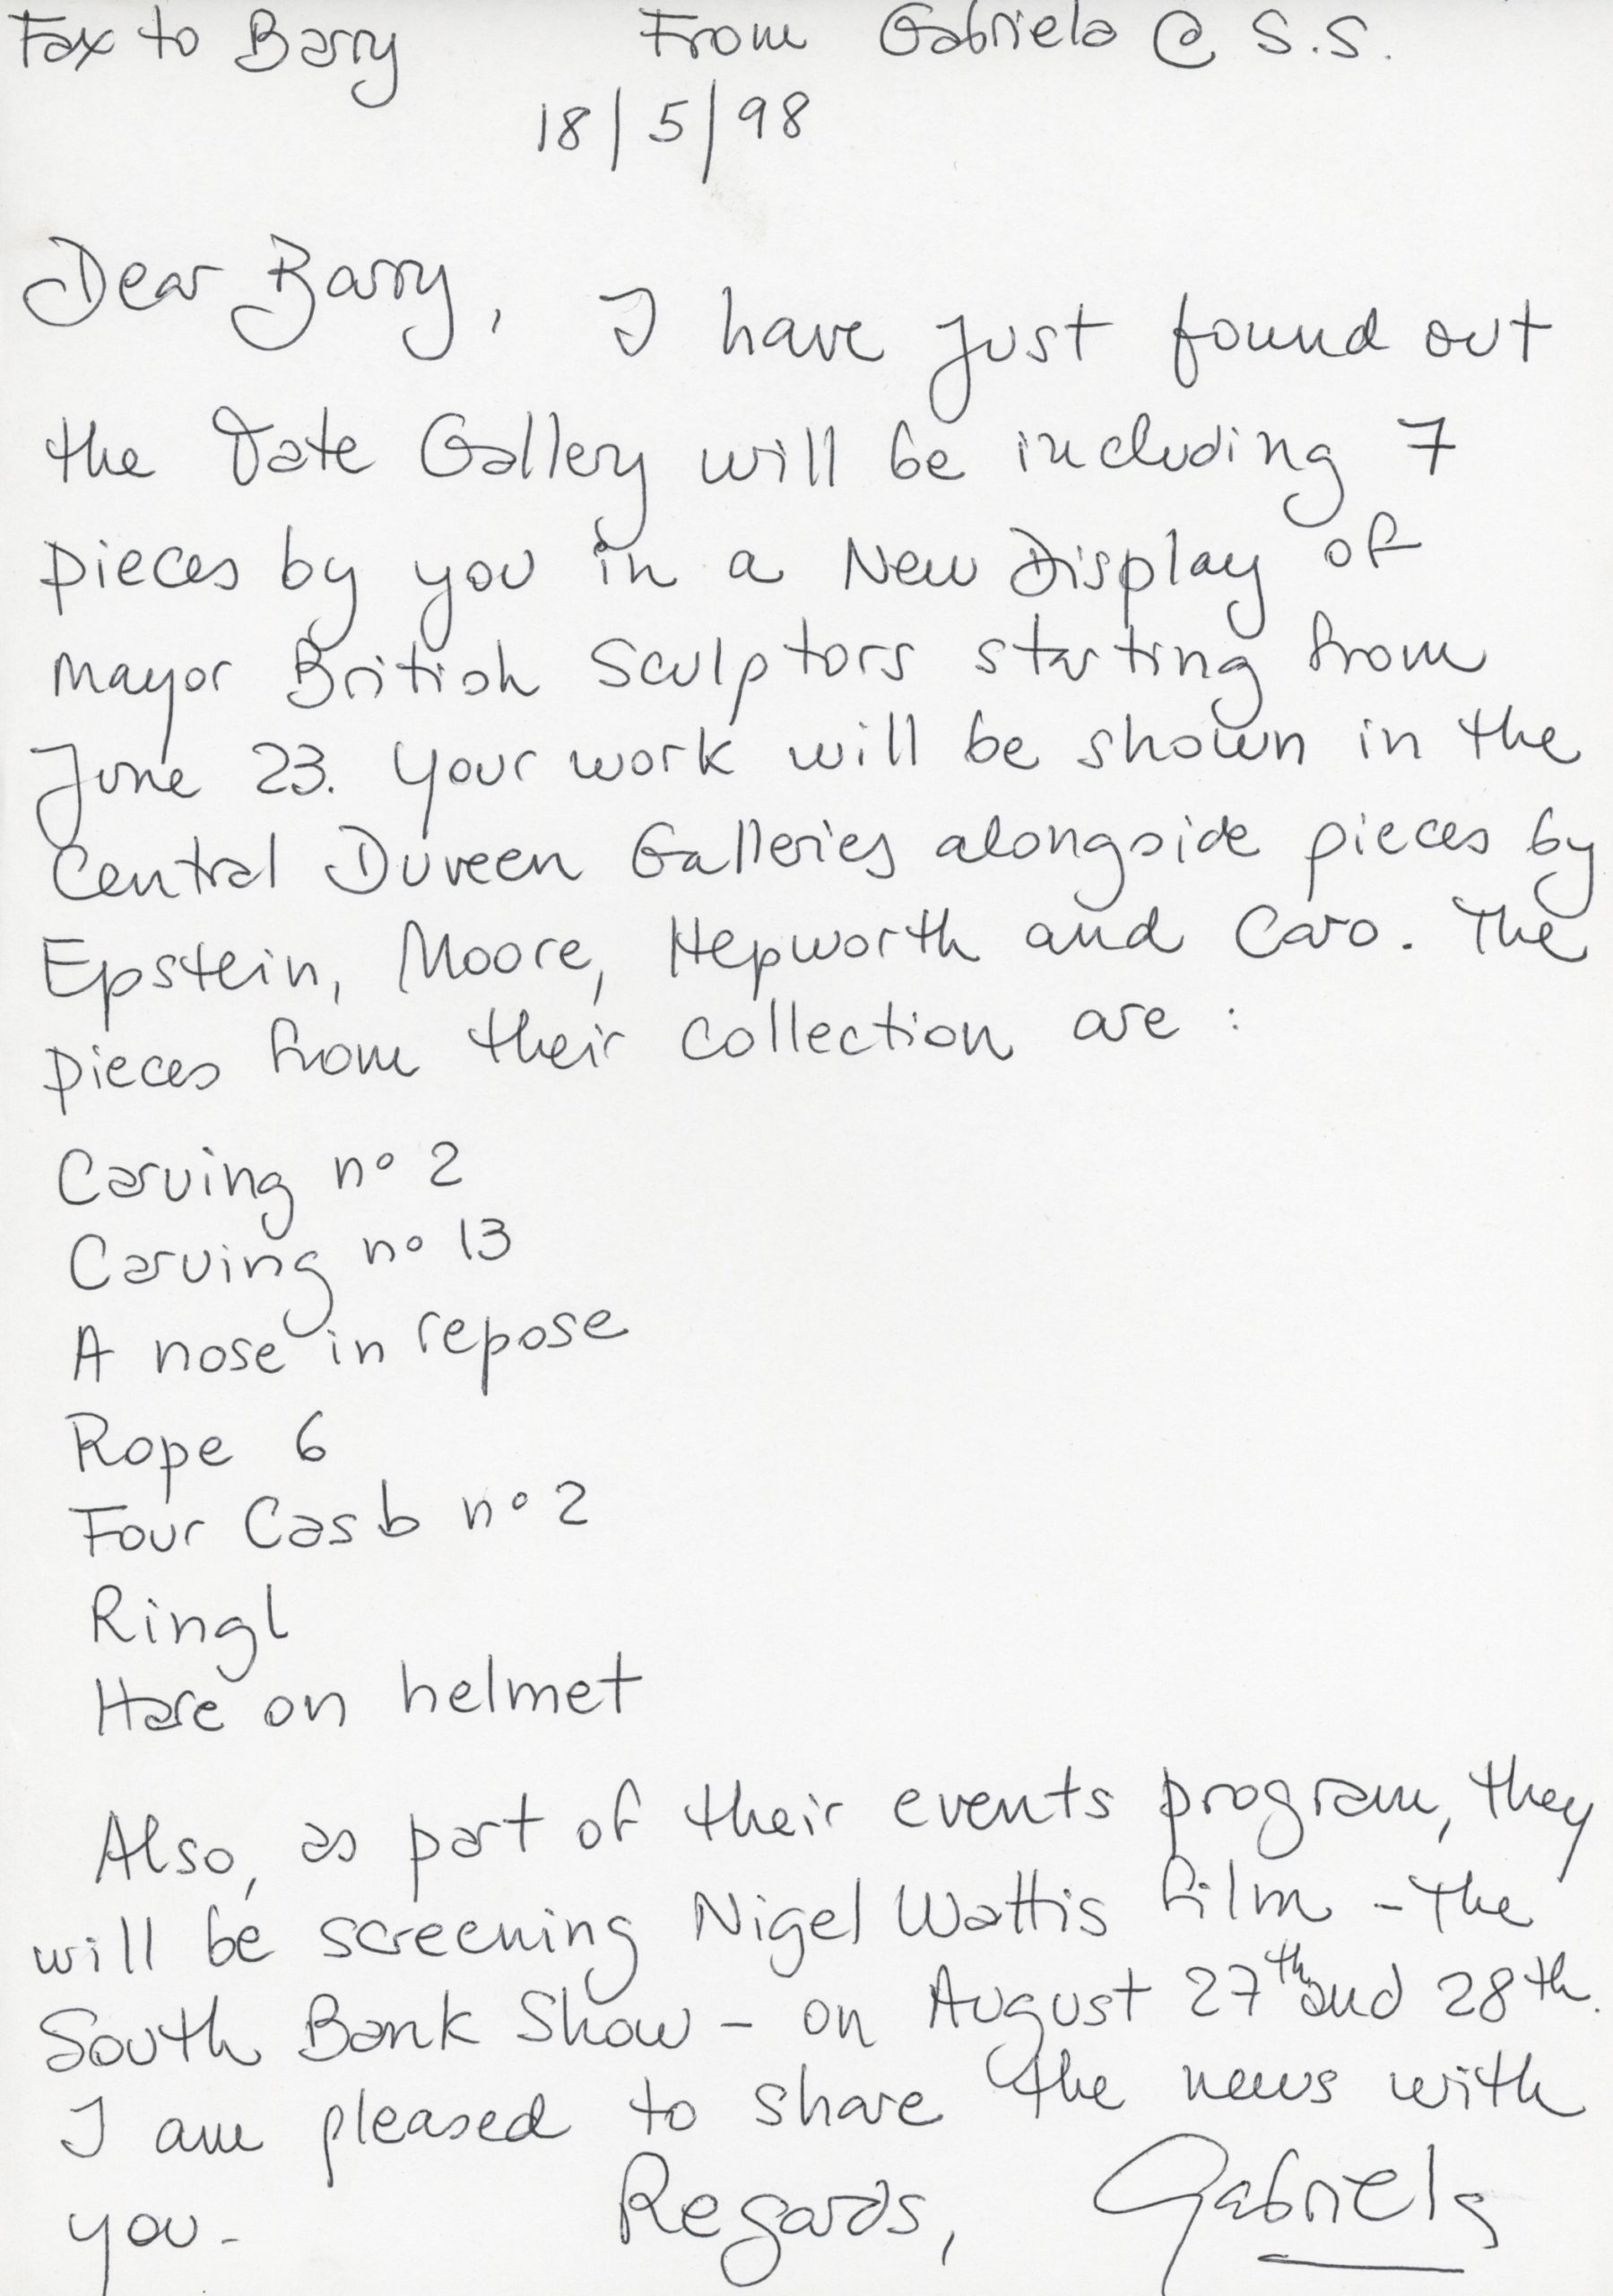 Fax to Barry From Gabriela @ S.S.
18/5/98
Dear Barry, I have just found out
the Tate Gallery will be including 7
pieces by you in a New Display of
mayor British Sculptors starting from
June 23. Your work will be shown in the
Central Duveen Galleries alongside pieces by
Epstein, Moore, Hepworth and Caro. The
pieces from their collection are :
Carving nº 2
Carving nº 13
A nose in repose
Rope 6
Four Casb nº 2
Ringl
Hare on helmet
Also, as part of their events program, they
will be screening Nigel Wattis film - The
South Bank Show - on August 27th and 28th.
I am pleased to share the news with
you - Regards, Gabriela